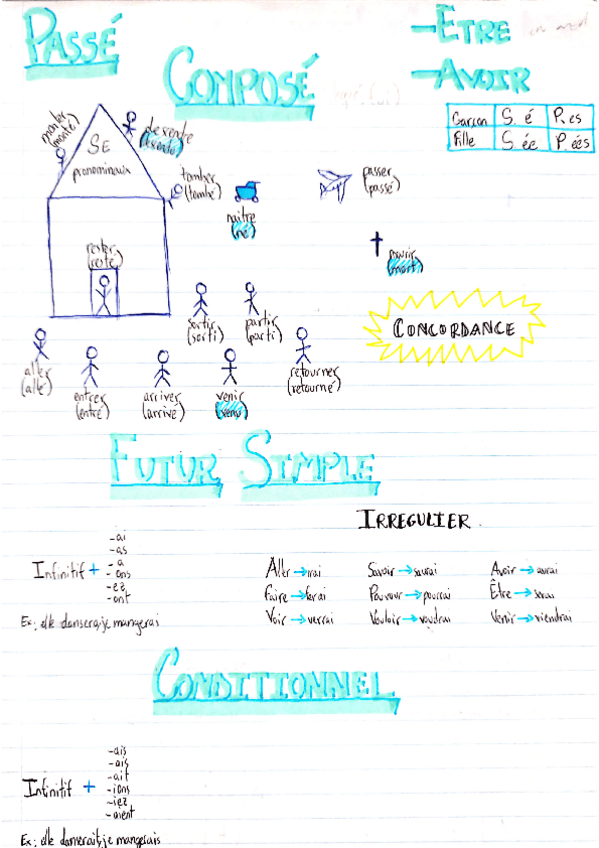 PASSÉ
COMPOSÉ
-ÊTRE
-AVOIR
Garcon S. é P. es
Fille S. ée P. ées
monter
(monté)
descente
(descendu)
SE
pronominaux
tomber
(tombé)
naitre
(né)
passer
(passé)
mourir
(mort)
rester
(resté)
sortir
(sorti)
partir
(parti)
CONCORDANCE
aller
(allé)
entrer
(entré)
arriver
(arrivé)
venir
(venu)
retourner
(retourné)
FUTUR SIMPLE
IRREGULIER
Infinitif +
-ai
-as
-a
-ons
-ez
-ont
Ex: elle dansera, je mangerai
Aller → irai Savoir → saurai Avoir → aurai
Faire → ferai Pouvoir → pourrai Être → serai
Voir → verrai Vouloir → voudrai Venir → viendrai
CONDITIONNEL
Infinitif +
-ais
-ais
-ait
-ions
-iez
-aient
Ex: elle danserait, je mangerais